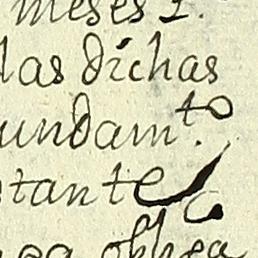 meses 1.
las dichas
undam.to
tante
obliga